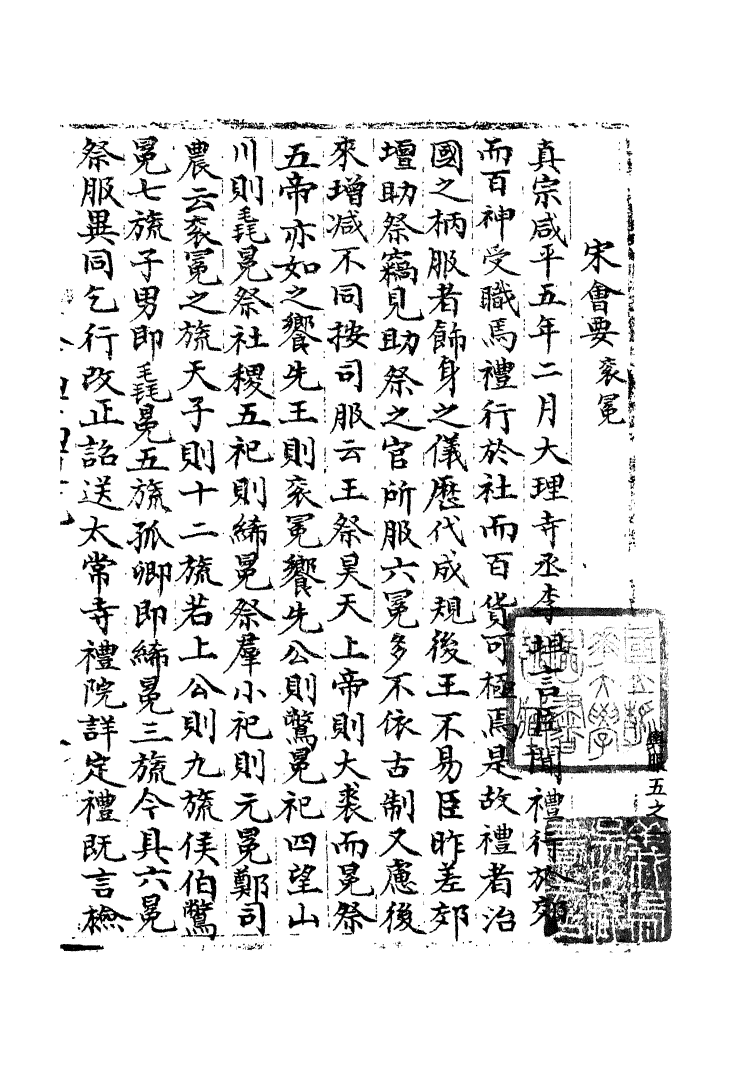 宋會要 衮冕
真宗咸平五年二月大理寺丞李坦言臣聞禮行於郊
而百神受職焉禮行於社而百貨可極焉是故禮者治
國之柄服者飾身之儀歷代成規後王不易臣昨差郊
壇助祭竊見助祭之官所服六冕多不依古制又慮後
來增減不同按司服云王祭昊天上帝則大裘而冕祭
五帝亦如之饗先王則衮冕饗先公則鷩冕祀四望山
川則毳冕祭社稷五祀則絺冕祭羣小祀則元冕鄭司
農云衮冕之旒天子則十二旒若上公則九旒侯伯鷩
冕七旒子男即毳冕五旒孤卿即絺冕三旒今具六冕
祭服異同乞行改正詔送太常寺禮院詳定禮既言檢
輿服五之